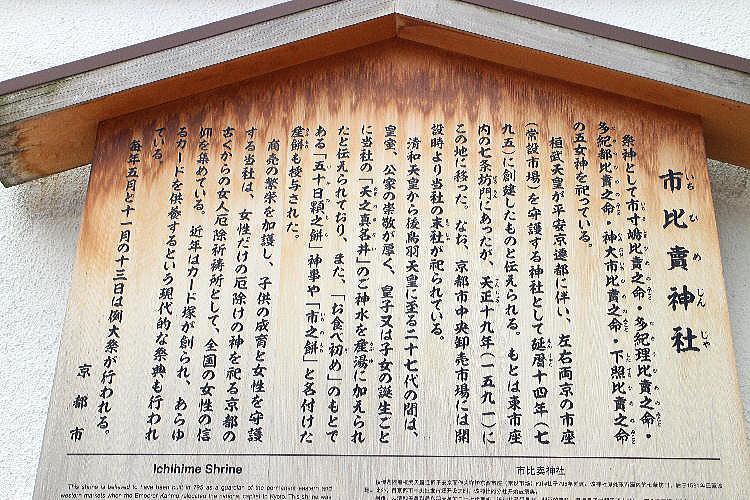 市比賣神社
いちひめじんじゃ
祭神として市寸嶋比賣之命・多紀理比賣之命・
多紀都比賣之命・神大市比賣之命・下照比賣之命
の五女神を祀っている。
桓武天皇が平安京遷都に伴い、左右両京の市座
(常設市場)を守護する神社として延暦十四年(七
九五)に創建したものと伝えられる。もとは東市座
内の七条坊門にあったが、天正十九年(一五九一)に
この地に移った。なお、京都市中央卸売市場には開
設時より当社の末社が祀られている。
清和天皇から後鳥羽天皇に至る二十七代の間は、
皇室、公家の崇敬が厚く、皇子又は子女の誕生ごと
に当社の「天之真名井」のご神水を産湯に加えられ
たと伝えられており、また、「お食べ初め」のもとで
ある「五十日顆之餅」神事や「市之餅」と名付けた
産餅も授与された。
商売の繁栄を加護し、子供の成育と女性を守護
する当社は、女性だけの厄除けの神を祀る京都の
古くからの女人厄除祈祷所として、全国の女性の信
仰を集めている。近年はカード塚が創られ、あらゆ
るカードを供養するという現代的な祭典も行われ
ている。
毎年五月と十一月の十三日は例大祭が行われる。
京都市
Ichihime Shrine
This shrine is believed to have been built in 795 as a guardian of the permanent eastern and
western markets when the Emperor Kanmu relocated the national capital to Kyoto. This shrine was
市比卖神社